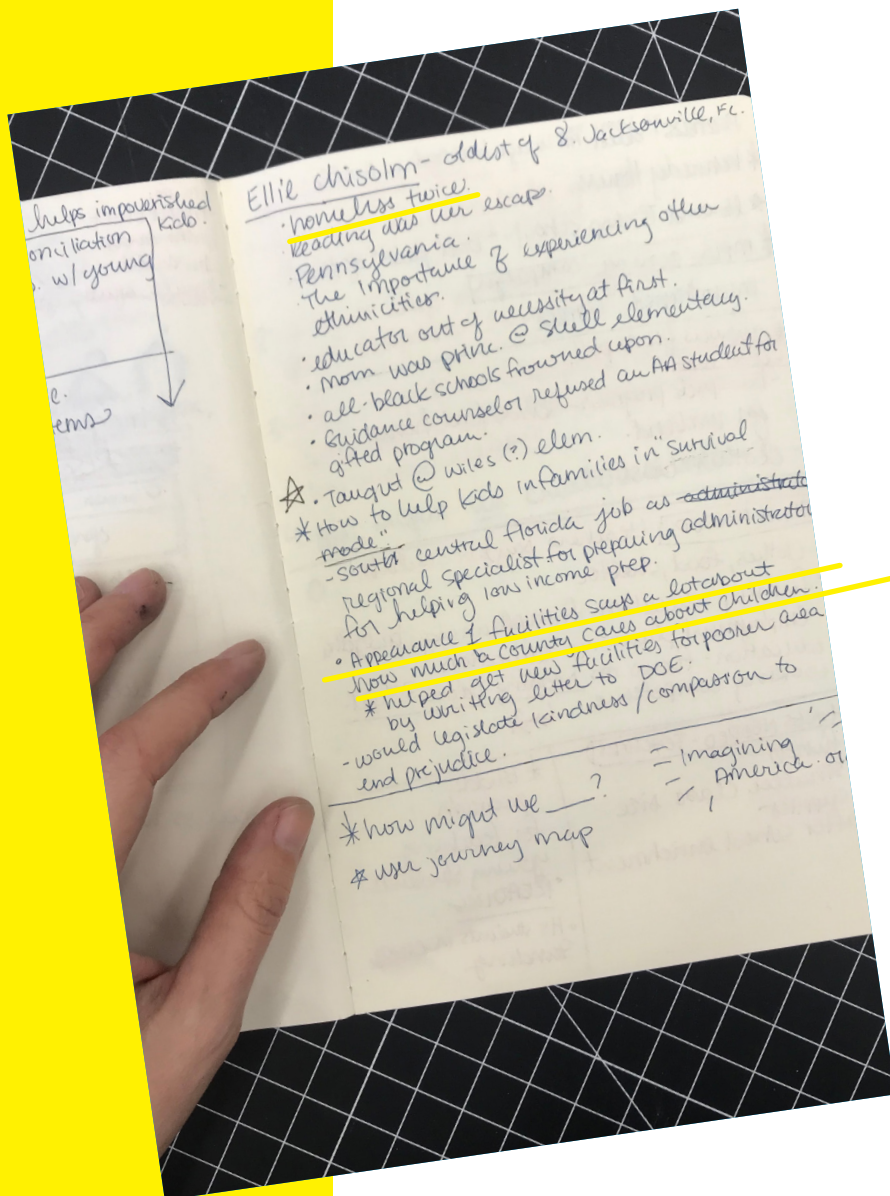 helps impoverished
kids.
onciliation
w/ young
c.
ems
Ellie Chisolm - oldest of 8. Jacksonville, FL.
· homeless twice.
· Reading was her escape.
· Pennsylvania.
· The Importance of experiencing other
ethinicities.
· educator out of necessity at first.
· Mom was princ. @ Shell elementary.
· all-black schools frowned upon.
· Guidance counselor refused an AA student for
gifted program.
☆ · Taught @ Wiles (?) elem.
* How to help kids in families in "survival
mode".
- south central florida job as administrato
regional specialist for preparing administrator
for helping low income prep.
· Appearance of facilities says a lot about
how much a county cares about children.
* helped get new facilities for poorer area
by writing letter to DOE.
- would legislate kindness/compassion to
end prejudice.
* how might we ___?
* user journey map
Imagining
America or